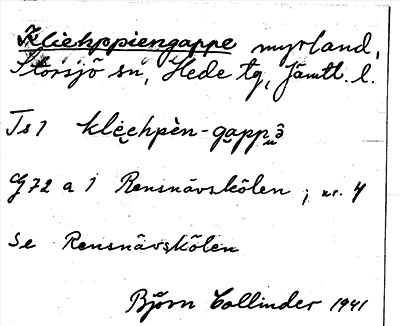 Kliehppiengappe myrland,
Storsjö sn, Hede tg, Jämtl. l.
Ts 1 kliẹẹhpèn-gạppᴈ
G 72 a 1 Rensnävskölen ; nr. 4
Se Rensnävskölen
Björn Collinder 1941